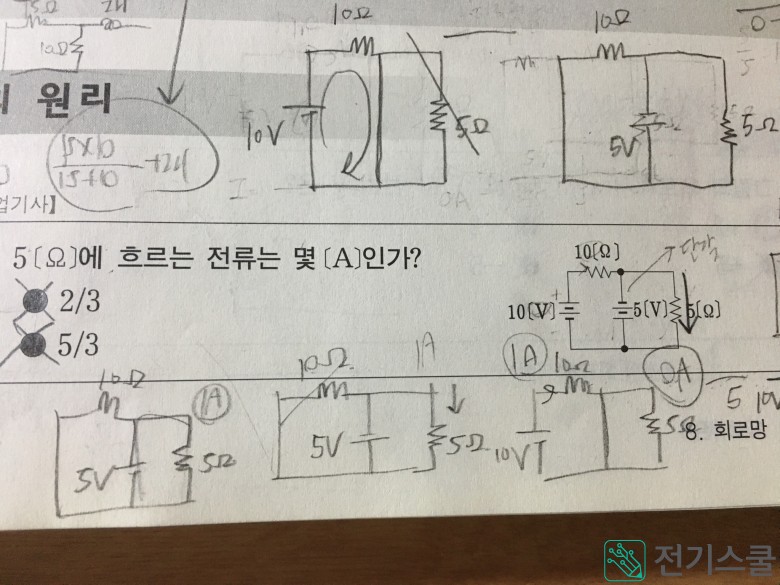 15Ω 2H
10Ω
10Ω
10V
5Ω
10Ω
5V
5Ω
의 원리
15×10
15+10
+2H
업기사】
I
0A
5〔Ω〕에 흐르는 전류는 몇〔A〕인가?
2/3
5/3
10〔Ω〕
단락
10〔V〕
5〔V〕
5〔Ω〕
10Ω
1A
5V
5Ω
10Ω
1A
5V
5Ω
1A
10Ω
0A
10V
5Ω
5 10V
8. 회로망
전기스쿨